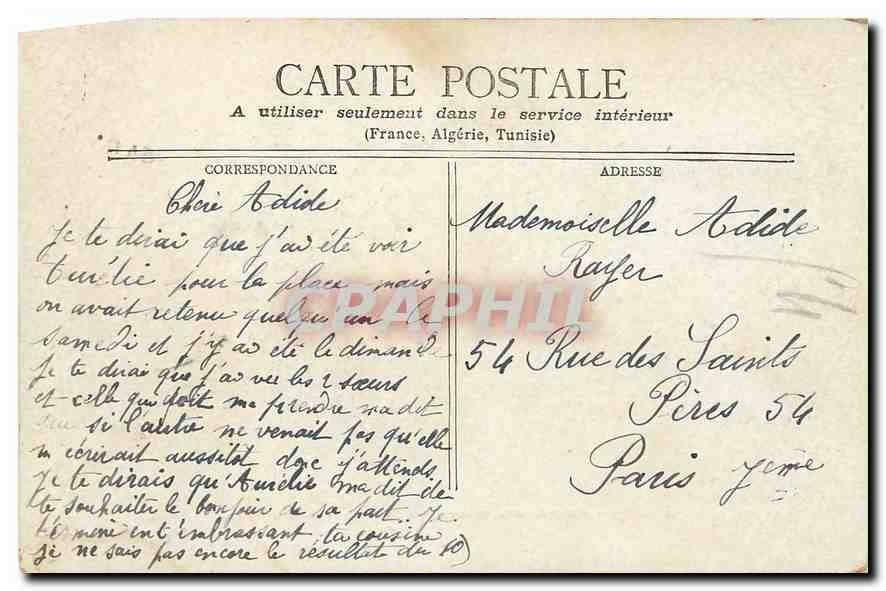 CARTE POSTALE
A utiliser seulement dans le service intérieur
(France, Algérie, Tunisie)
CORRESPONDANCE
Chère Adide
Je te dirai que j'av été voir
Aurélie pour la place mais
on avait retenu quelqu'un le
samedi et j'y av été le dimanche
je te dirai que j'av vu les 2 sœurs
et celle qui doit me prendre ma dit
que si l'autre ne venait pas qu'elle
m écrirait aussitot donc j'attends
Je te dirais qu'Aurélie ma dit de
te souhaiter le bonjour de sa part. Je
termine en t'embrassant ta cousine
je ne sais pas encore le résultat du 10)
ADRESSE
Mademoiselle Adide
Rayer
54 Rue des Saints
Pères 54
Paris 7eme
CPAPHIL